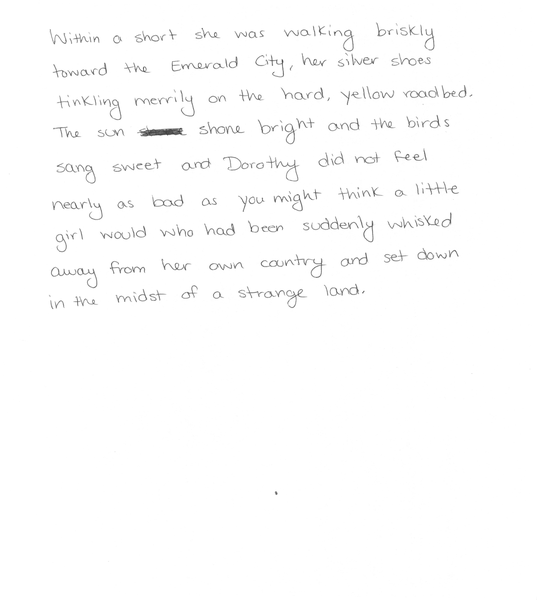 Within a short she was walking briskly
toward the Emerald City, her silver shoes
tinkling merrily on the hard, yellow roadbed.
The sun shone bright and the birds
sang sweet and Dorothy did not feel
nearly as bad as you might think a little
girl would who had been suddenly whisked
away from her own country and set down
in the midst of a strange land.